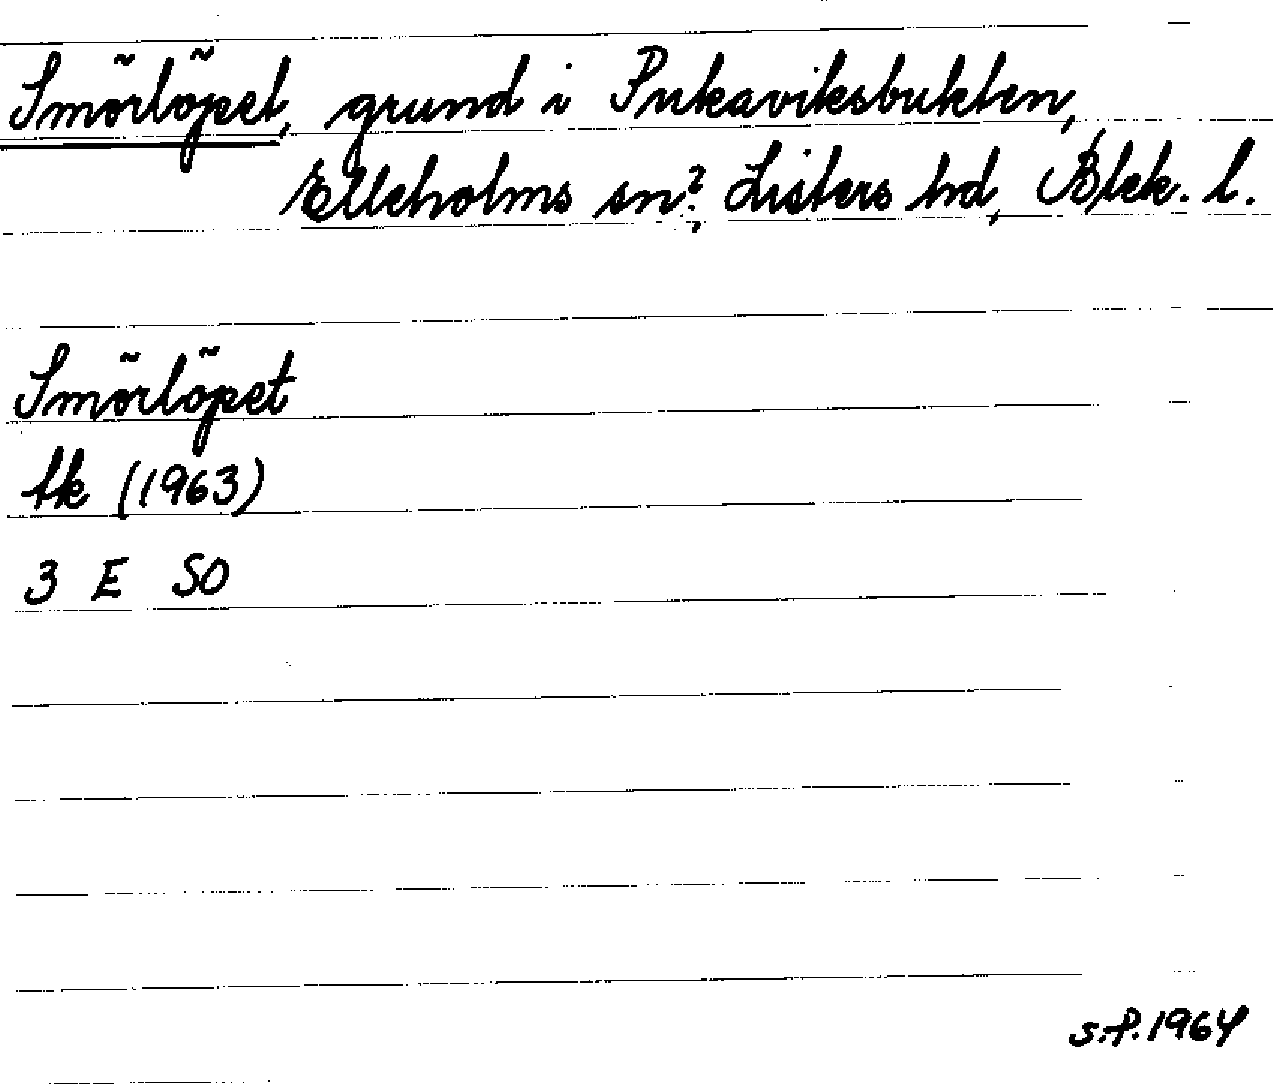 Smörlöpet, grund i Pukaviksbukten,
Elleholms sn? Listers hd, Blek. l.
Smörlöpet
tk (1963)
3 E SO
s.f. 1964